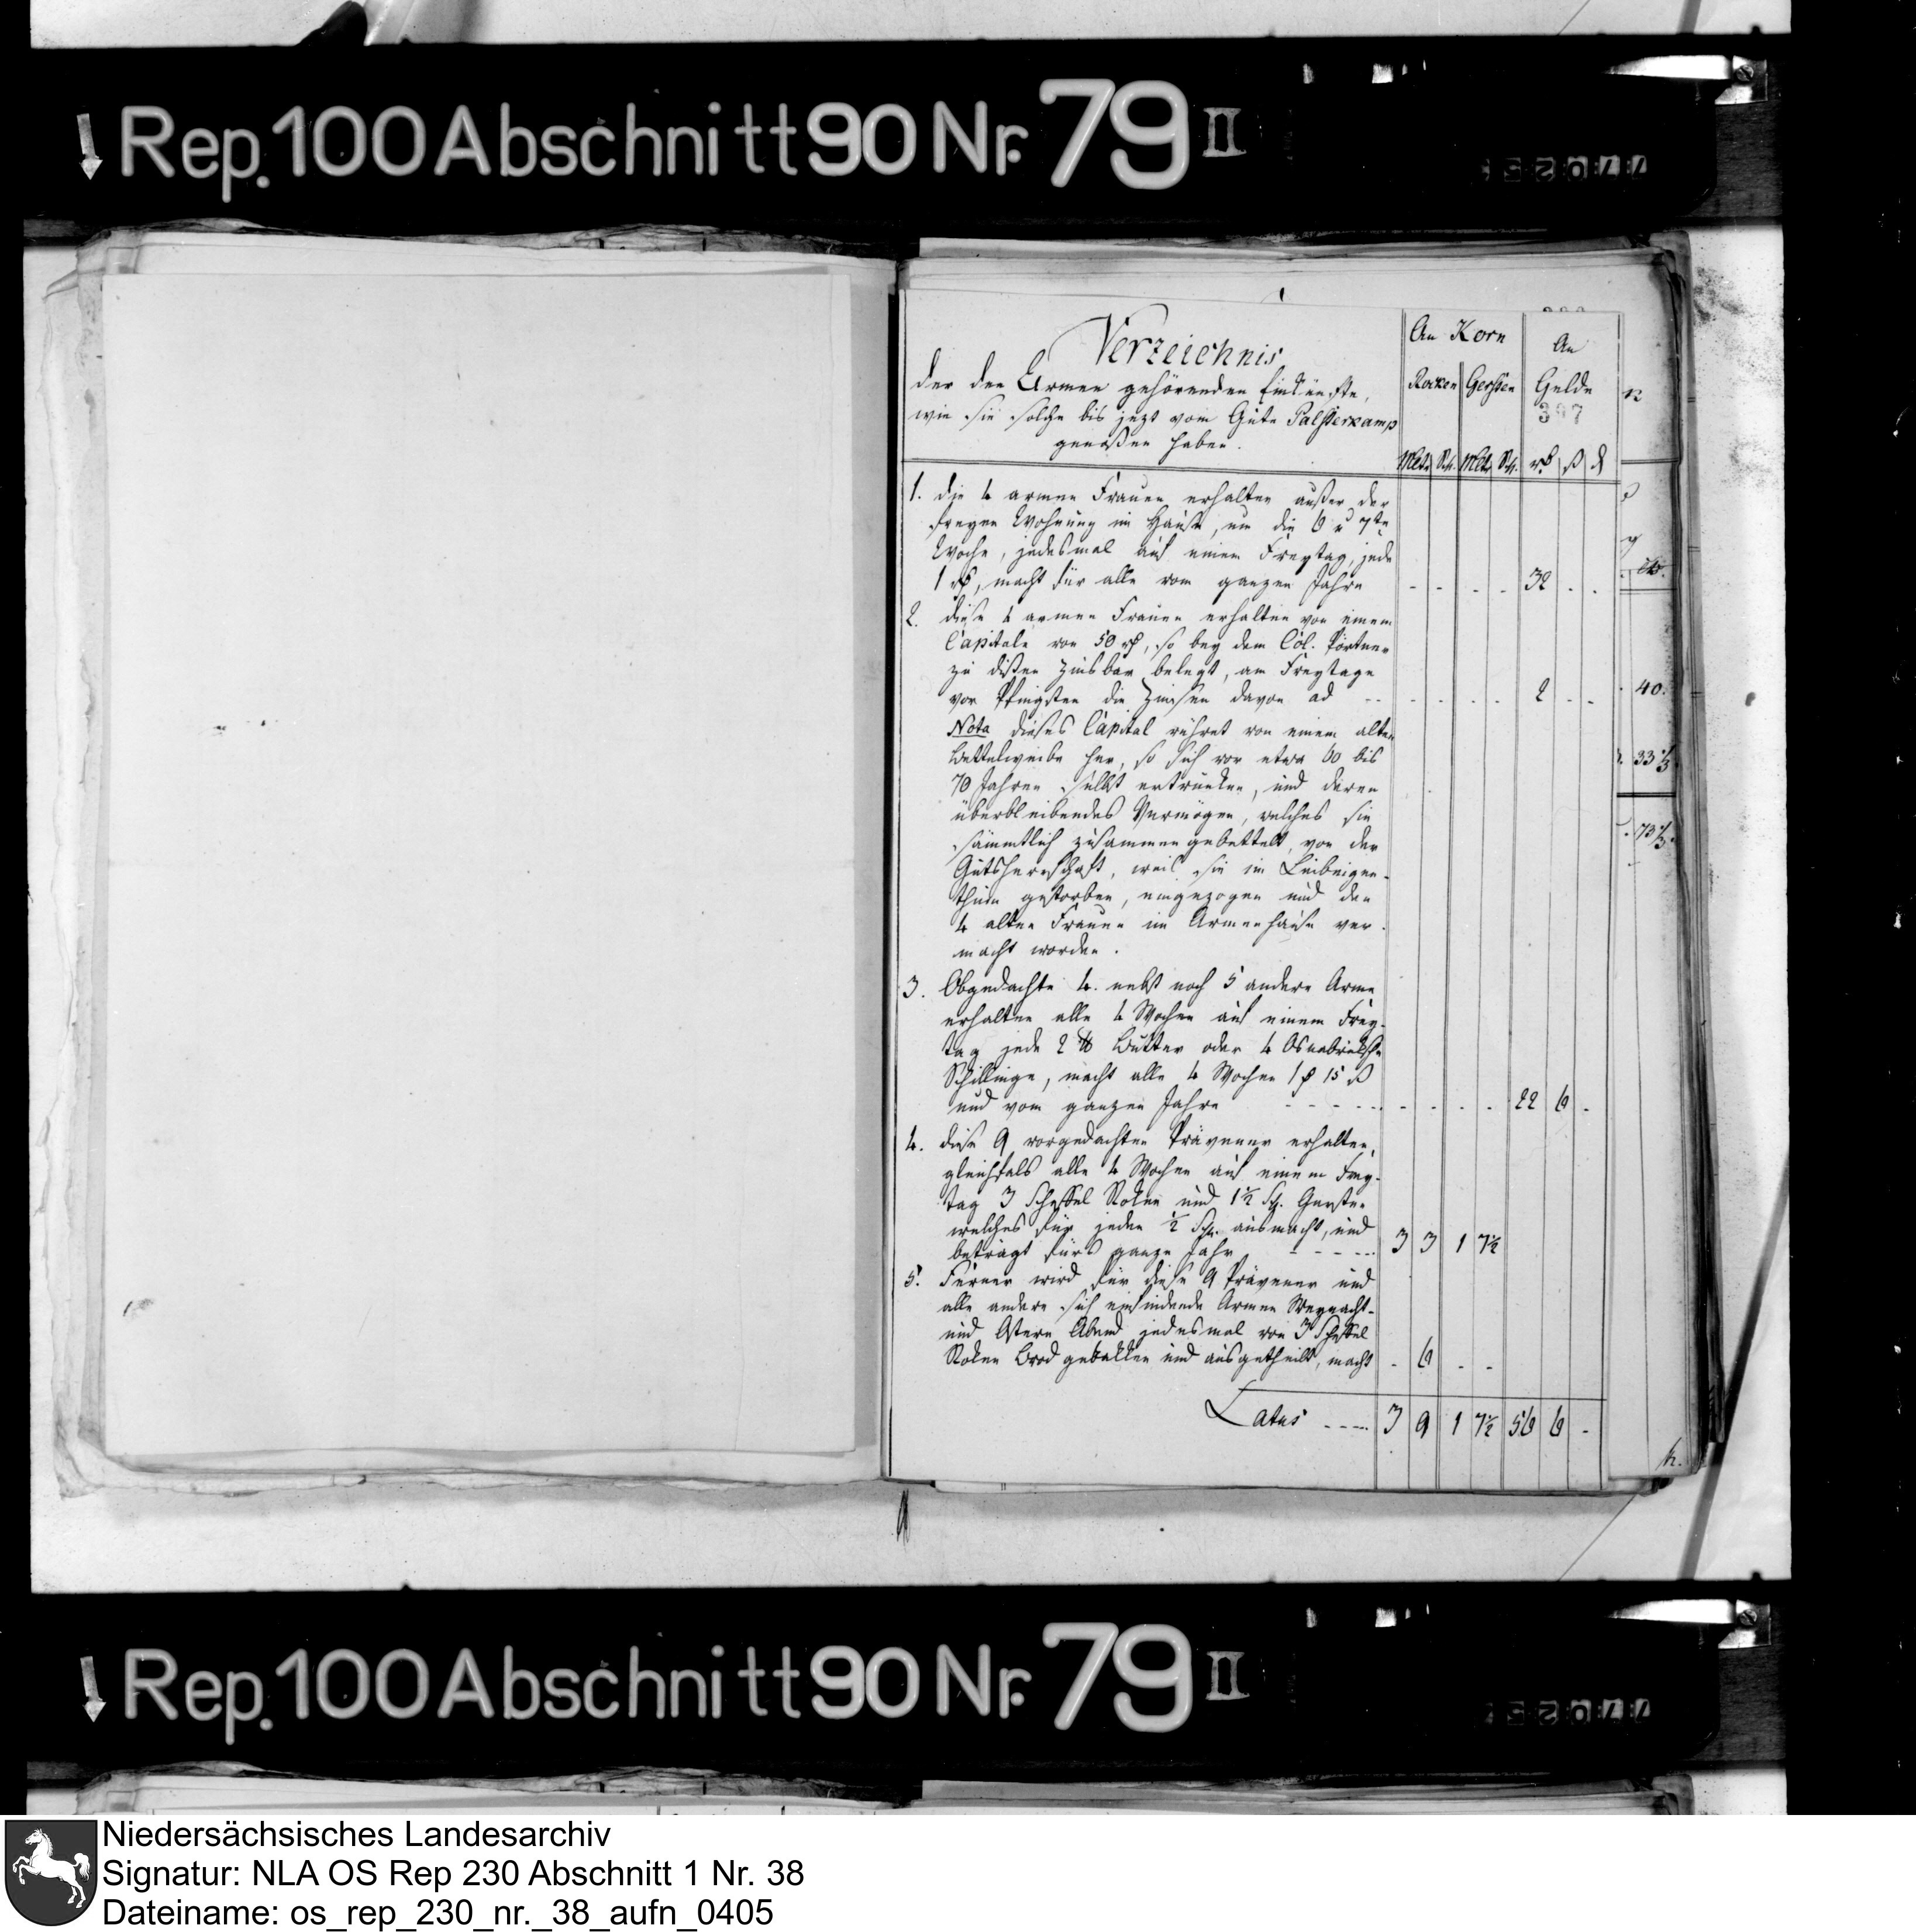 Rep. 100 Abschnitt 90 Nr. 79 II
77025
Verzeichnis
der den Armen gehörenden Einkünfte,
wie sie solche bis jezt vom Gute Palsterkamp
genoßen haben.
An Korn
An
Rocken Gersten Gelde
397
Mltr Sch. Mltr Sch. rthlr ß d
1. die 4 armen Frauen erhalten außer der
freyen Wohnung im Hause, um die 6 u 7te
Woche, jedesmal auf einem Freytag, jede
1 rthlr, macht für alle vom ganzen Jahre - - - - 32 - -
2. diese 4 armen Frauen erhalten von einem
Capitale von 50 rthlr, so bey dem Col. Pörtner
zu Dißen Zinsbar belegt, am Freytage
vor Pfingsten die Zinsen davon ad - - - - - 2 - -
Nota dieses Capital rühret von einem alten
Bettelweibe her, so sich vor etwa 60 bis
70 Jahren selbst ertrunken, und deren
überbleibendes Vermögen, welches sie
sämmtlich zusammengebettelt, von der
Gutsherrschaft, weil sie im Leibeigen-
thum gestorben, eingezogen und den
4 alten Frauen im Armenhause ver-
macht worden.
3. Obgedachte 4. nebst noch 5 andere Arme
erhalten alle 4 Wochen auf einem Frey-
tag jede 2 ℔ Butter oder 4 Osnabrücksche
Schillinge, macht alle 4 Wochen 1 rthlr 15 ß
und vom ganzen Jahre - - - - - - - - - 22 6 -
4. diese 9 vorgedachten Prävener erhalten,
gleichfals alle 4 Wochen auf einem Frey-
tag 3 Scheffel Roken und 1½ Sch. Gersten
welches für jeden ½ Sch. ausmacht, und
beträgt fürs ganze Jahr - - - - - 3 3 1 7½
5. Ferner wird für diese 9 Prävener und
alle andere sich einfindende Armen Weynacht-
und Ostern Abend jedesmal von 3 Scheffel
Roken Brod gebakken und ausgetheilt, macht - 6 - -
Latus - - - - 3 9 1 7½ 56 6 -
40.
33⅓
73⅓.
Rep. 100 Abschnitt 90 Nr. 79 II
77025
Niedersächsisches Landesarchiv
Signatur: NLA OS Rep 230 Abschnitt 1 Nr. 38
Dateiname: os_rep_230_nr._38_aufn_0405